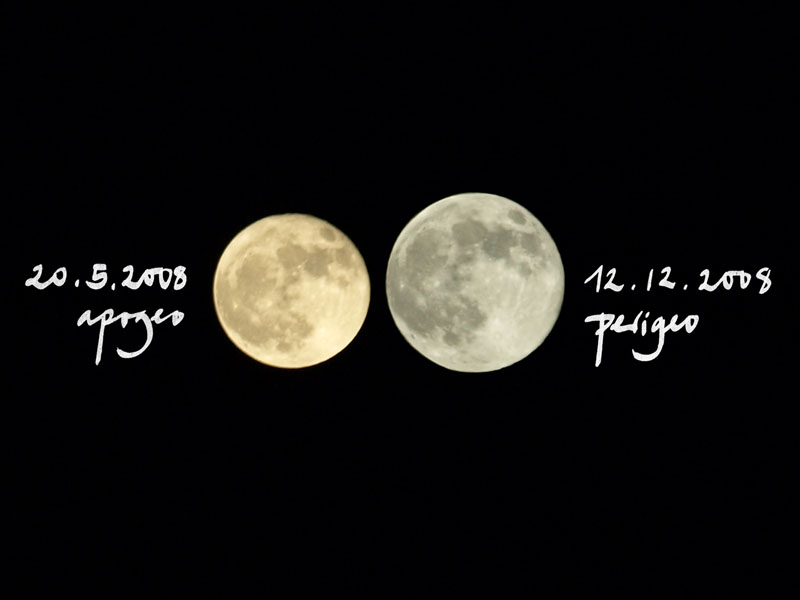 20.5.2008
apogeo
12.12.2008
perigeo